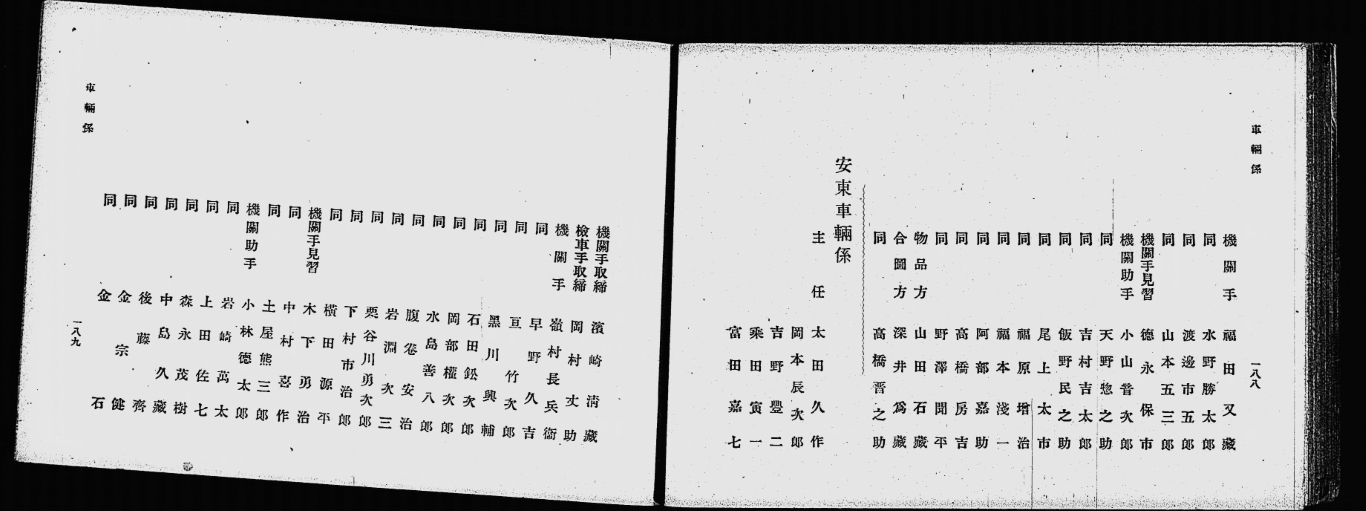 車輛係
機關手 福田又藏
同 水野勝太郎
同 渡邊市五郎
同 山本五三郎
機關手見習 德永保市
機關助手 小山晉次郎
同 天野惣之助
同 吉村吉太郎
同 飯野民之助
同 尾上太市
同 福原增治
同 福本淺一
同 阿部嘉助
同 高橋房吉
同 野澤聞平
物品方 山田石藏
合圖方 深井爲藏
同 高橋晋之助
安東車輛係
主任 太田久作
岡本辰次郎
吉野豐二
乘田寅一
富田嘉七
一八八
機關手取締 濱崎淸藏
檢車手取締 岡村丈助
機關手 嶺村長兵衞
同 早野久吉
同 亘竹次郎
同 黑川興輔
同 石田鈆次郎
同 岡部權次郎
同 水島善八郎
同 腹卷安治
同 岩淵次三
同 栗谷川勇次郎
同 下村市治郎
同 橫田源平
機關手見習 木下勇治
同 中村喜作
同 土屋熊三郎
機關助手 小林德太郎
同 岩崎萬太
同 上田佐七
同 森永茂樹
同 中島久藏
同 後藤齊
同 金宗健
同 金石
車輛係
一八九